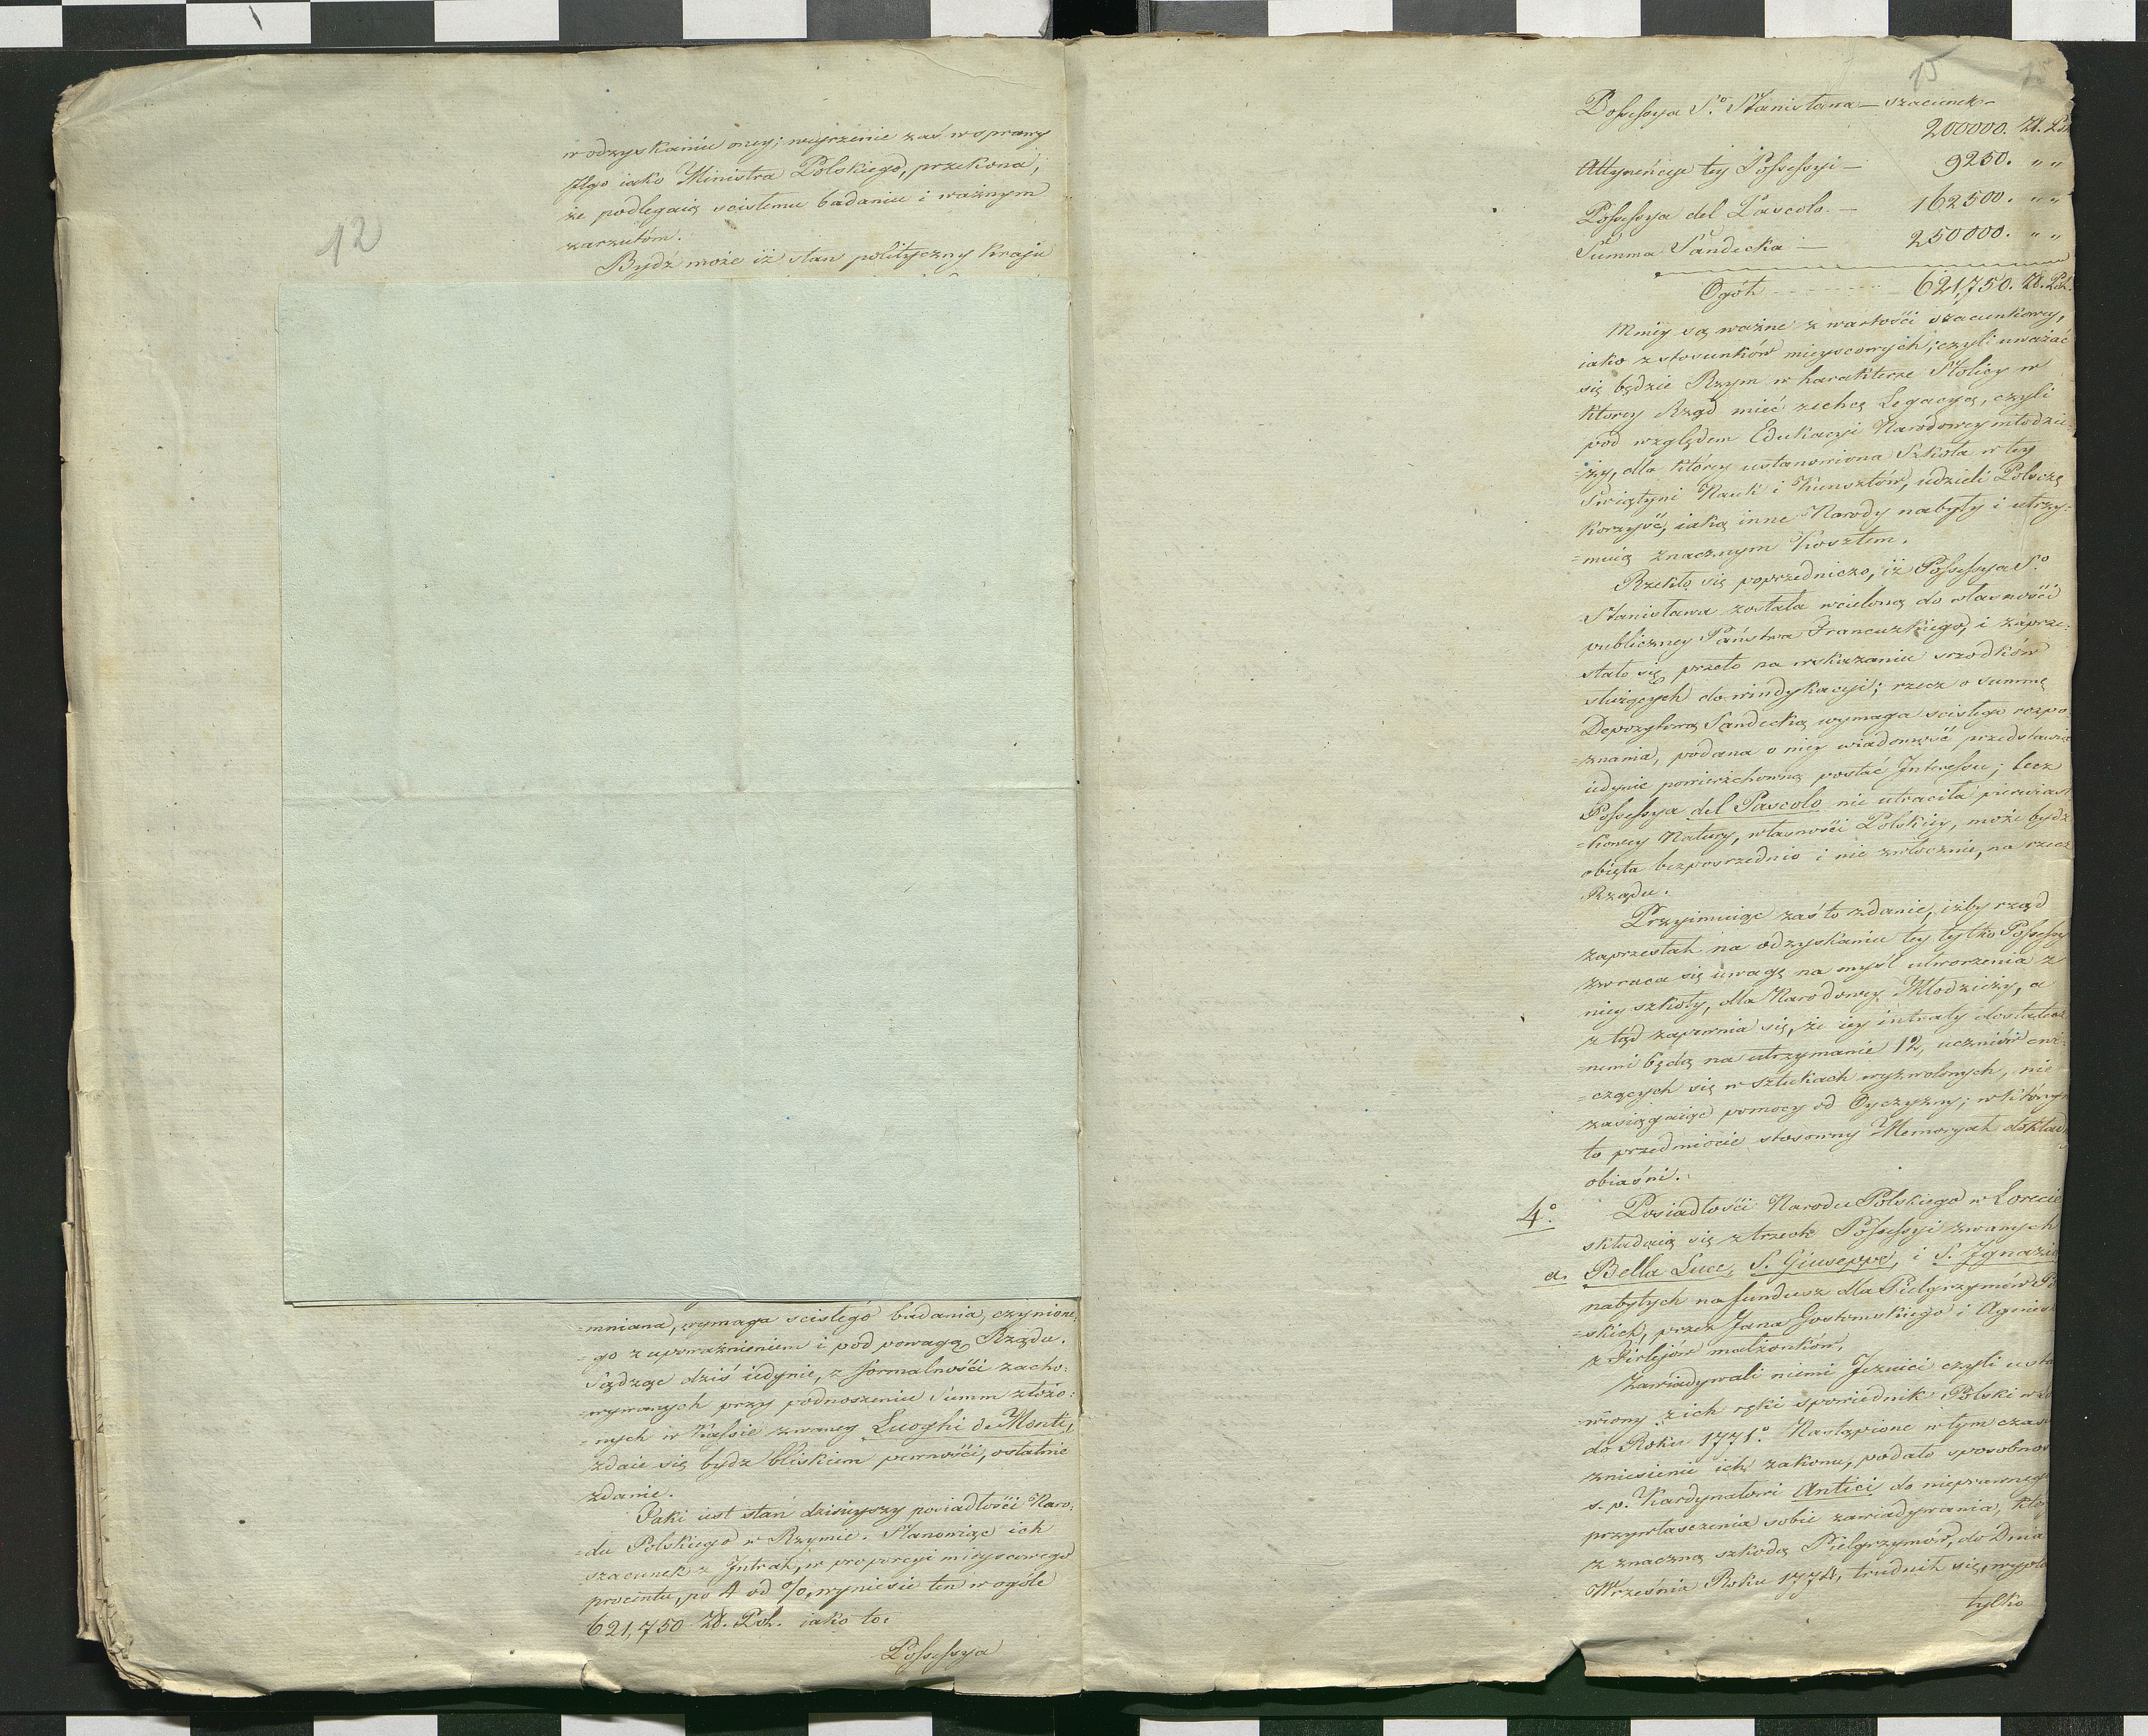 12
w odzyskaniu oney; weyrzenie zaś w sprawy
iako Ministra Polskiego, przekona,
że podlegaią scisłemu badaniu i ważnym
zarzutóm.
Bydź może iż stan polityczny Kraju
=mniana, wymaga scisłego badania, czynione=
=go z upoważnieniem i pod powagą Rządu.
Sądząc dziś iedynie, z formalnośći zacho=
=wywanych przy podnoszeniu Summ złożo=
=nych w Kassie zwaney Luoghi de Monti,
zdaie się bydź bliskiem pewnośći, ostatnie
zdanie.
Jaki iest stan dzisieyszy posiadłośći Naro=
=du Polskiego w Rzymie. Stanowiąc ich
szacunek z Intrat, w proporcyi mieyscowego
procentu, po 4 od %, wyniesie ten w ogóle
621,750 Zł. Pol. iako to:
Possessya
15
Possessya S.° Stanisława — szacunek —
200000. Zł. Pol
Attynencye tey Possessyi — 9250. " "
Possessya del Pascolo. — 162500. " "
Summa Sandecka — 250000. " "
Ogół 621,750. Zł. Pol.
Mniey są ważne z wartośći szacunkowey,
iako z stosunków mieyscowych; czyli uważać
się będzie Rzym w harakterze Stolicy w
ktorey Rząd mieć zechcą Legacyą, czyli
pod względem Edukacyi Narodowey młodzie=
=ży, dla którey ustanowiona Szkoła w tey
Swiątyni Nauk i Kunsztów, udzieli Polszcze
korzyść, iaką inne Narody nabyły i utrzy=
=muią znacznym Kosztem.
Rzekło się poprzedniczo, iż Possessya S.°
Stanisława została wcieloną do własnośći
publiczney Państwa Francuzkiego, i zaprze=
stało się przeto na wskazaniu srzodków
służących do windykacyi; rzecz o summę
Depozytową Sandecką wymaga scisłego rozpo=
=znania, podana o niey wiadomość przedstawia
iedynie powierzchowną postać Interessu; lecz
Possessya del Pascolo nie utraciła pierwiast
=kowey Natury, własnośći Polskiey, może bydź
obięta bezposrzednio i nie zwłocznie, na rzecz
Rządu.
Przyimuiąc zaś to zdanie, iżby rząd
zaprzestał na odzyskaniu tey tylko Possessyi
zwraca się uwagę na myśl utworzenia z
niey szkoły, dla Narodowey Młodzieży, a
z tąd zapewnia się, że iey intraty dostatecz
=nemi będą na utrzymanie 12, uczniów ćwi=
=czących się w sztukach wyzwolonych, nie
zasiągaiąc pomocy od Oyczyzny; w którym
to przedmiocie stosowny Memoryał dokład
obiaśni.
4.° Posiadłośći Narodu Polskiego w Lorecie
składaią się z trzech Possessyi zwanych
a. Bella Luce, S. Giuseppe, i S. Ignazio
nabytych na fundusz dla Pielgrzymów Po
=skich, przez Jana Gostomskiego i Agniesz
z Firlejów małżonków,
Zawiadywali niemi Jezuici czyli usta
=wiony z ich ręki spowiednik Polski w Lo
do Roku 1771.° Nastąpione w tym czasie
zniesienie ich zakonu, podało sposobnos
s. p. Kardynałowi Antici do nieprawnego
przywłasczenia sobie zawiadywania, któ
z znaczną szkodą Pielgrzymów, do Dnia
Września Roku 1774, trudnił się, wypła
tylko